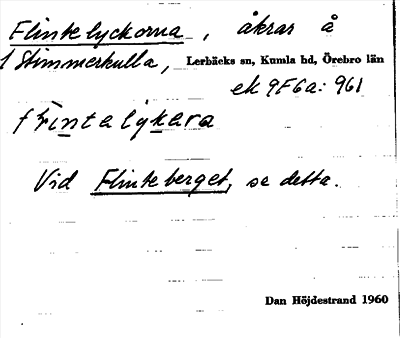 Flintelyckorna, åkrar å
1 Stimmerkulla, Lerbäcks sn, Kumla hd, Örebro län
ek 9F6a: 961
Vid Flinteberget, se detta.
Dan Höjdestrand 1960